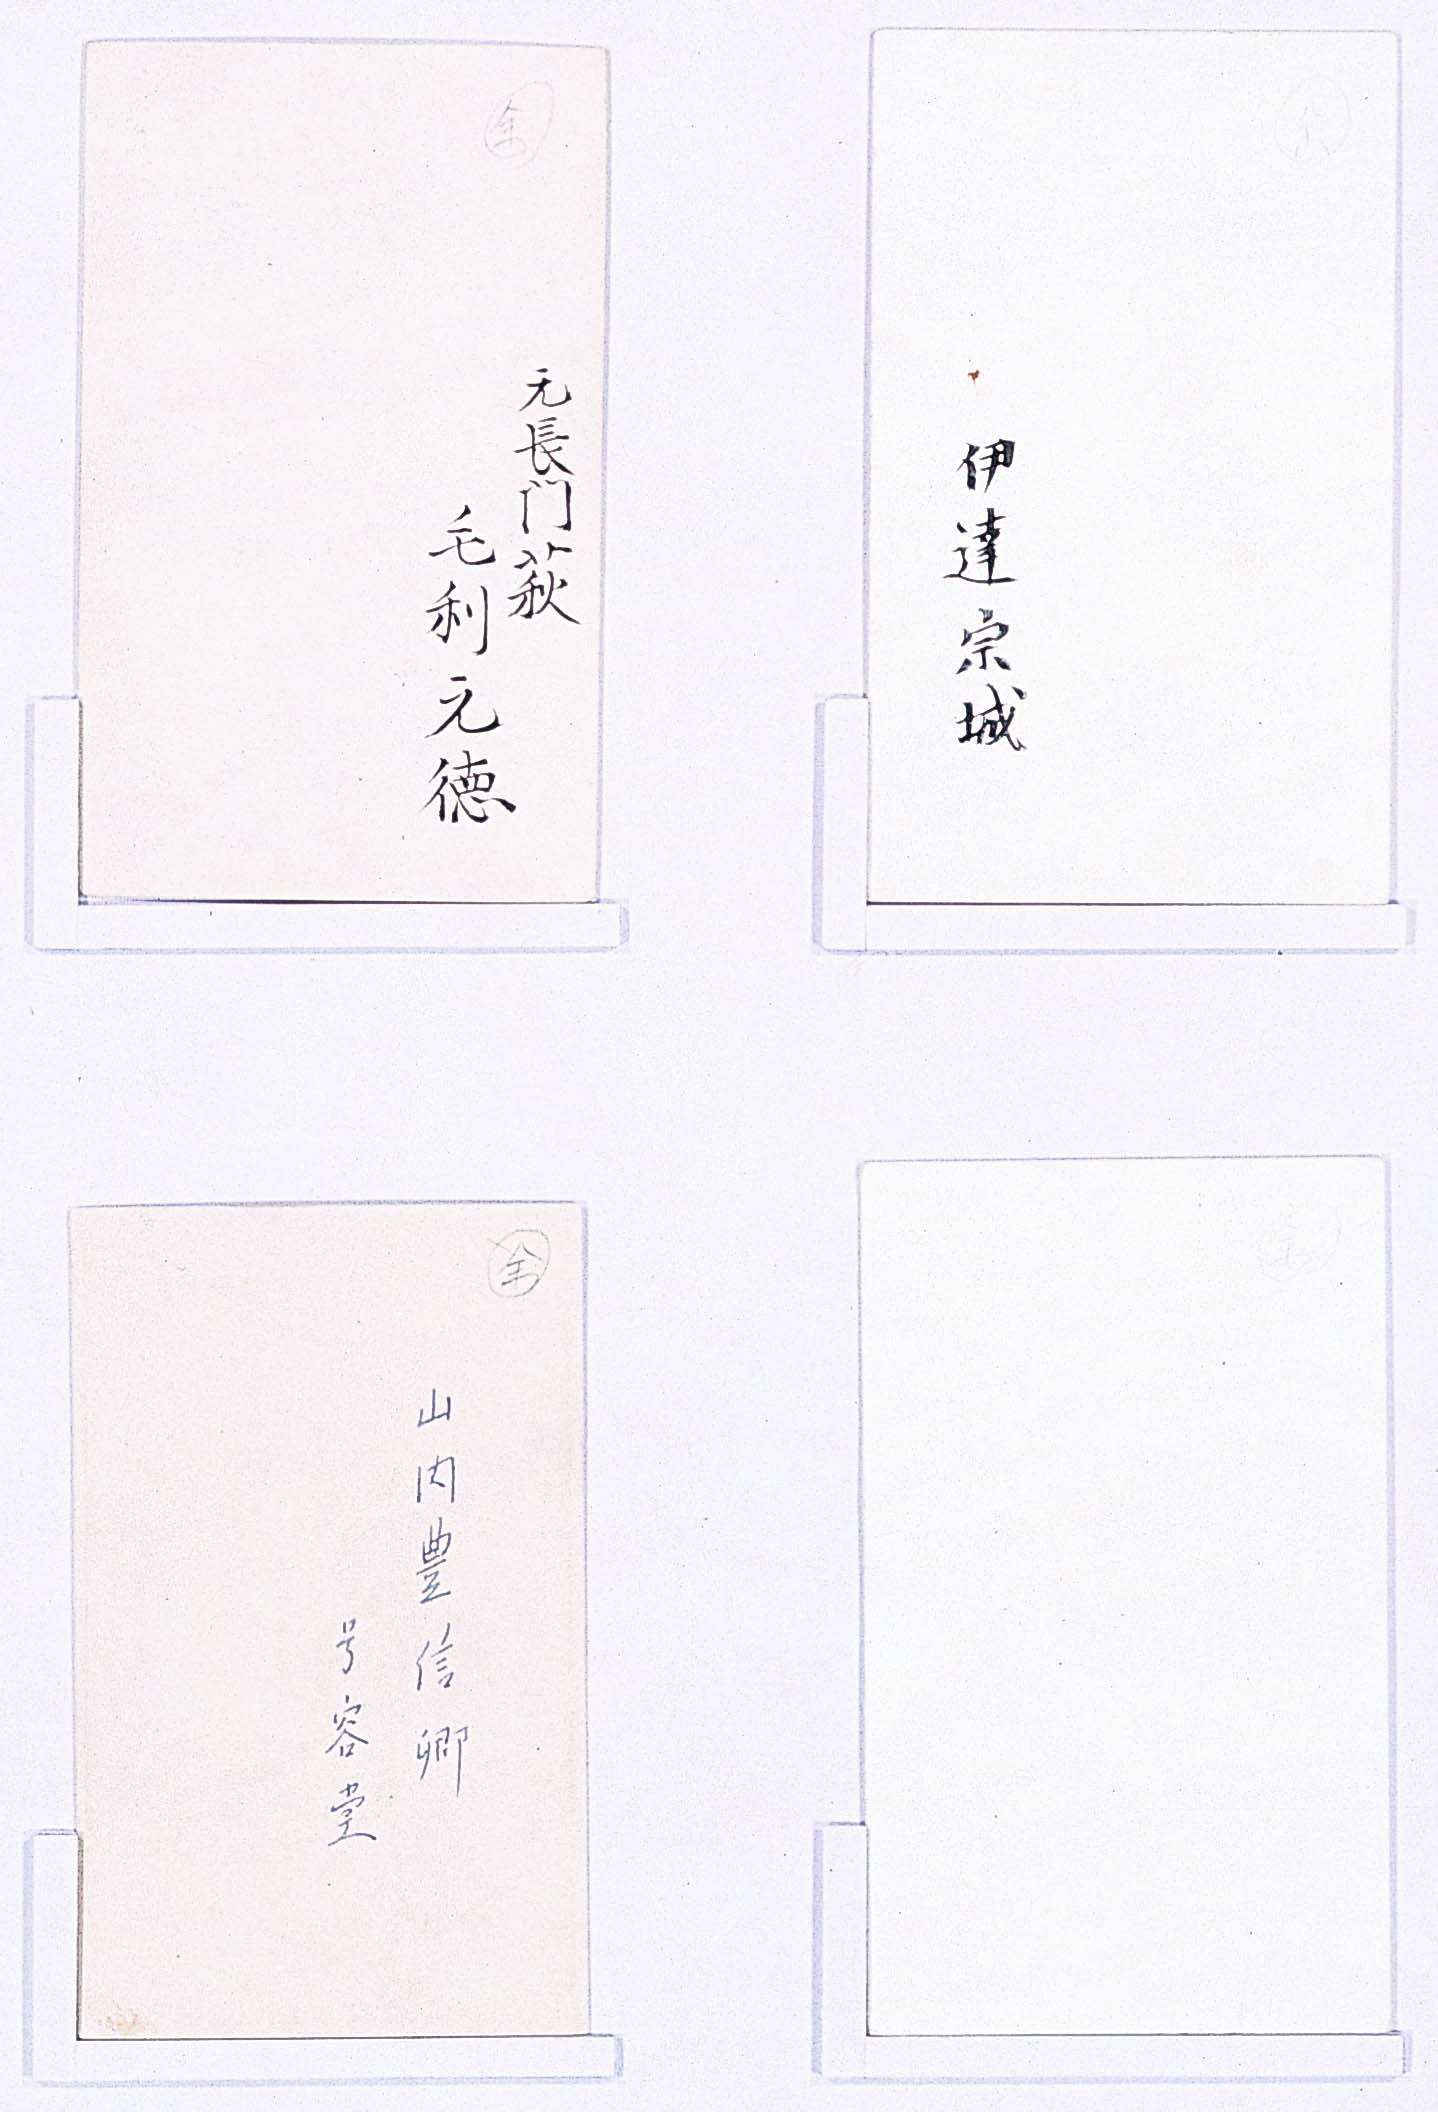 伊達宗城
元長門萩
毛利元徳
全
山内豊信卿
号容堂
全